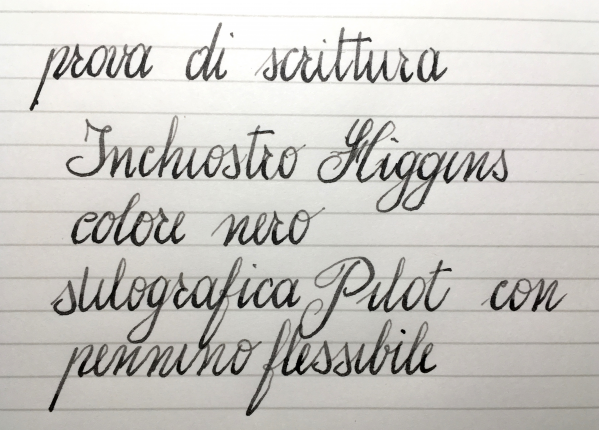 prova di scrittura
Inchiostro Higgins
colore nero
stilografica Pilot con
pennino flessibile